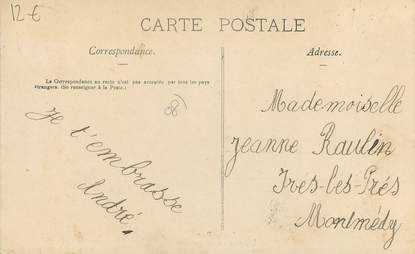 12 €
CARTE POSTALE
Correspondance.
Adresse.
La Correspondance au recto n'est pas acceptée par tous les pays
étrangers. (Se renseigner à la Poste.)
Je t'embrasse
André.
Mademoiselle
Jeanne Raulin
Ires-les-Prés
Montmédy